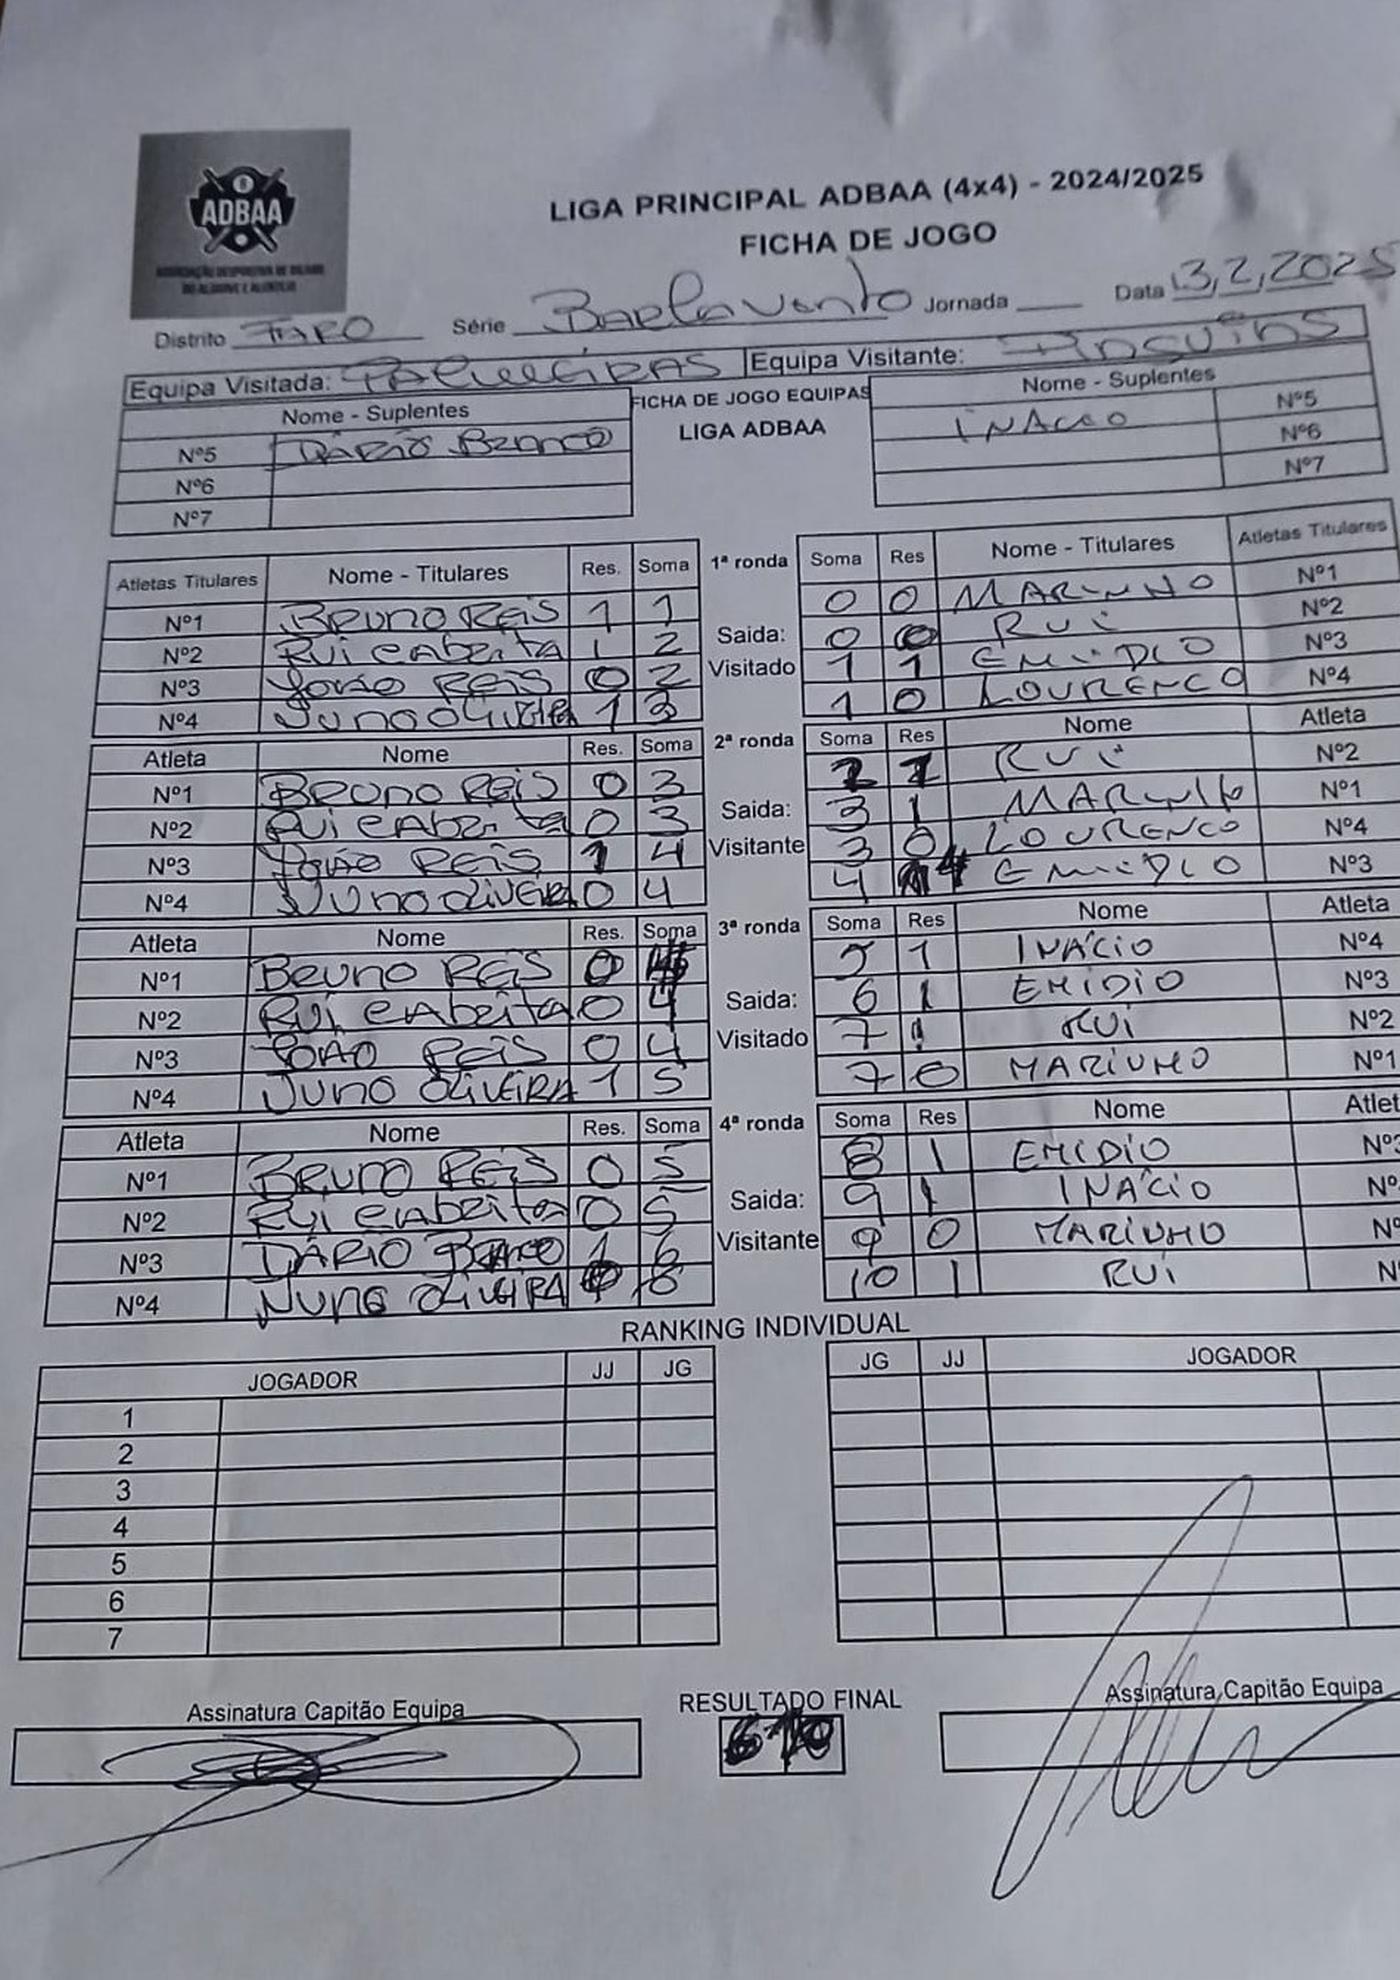 ADBAA
ASSOCIAÇÃO DESPORTIVA DE BILHAR
DO ALGARVE E ALENTEJO
LIGA PRINCIPAL ADBAA (4x4) - 2024/2025
FICHA DE JOGO
Distrito FARO Série Barlavento Jornada ____ Data 13,2,2025
Equipa Visitada: PALMEIRAS Equipa Visitante: Pinguins
Nome - Suplentes FICHA DE JOGO EQUIPAS Nome - Suplentes
LIGA ADBAA
Nº5 DÁRIO Branco INACIO Nº5
Nº6 Nº6
Nº7 Nº7
Atletas Titulares Nome - Titulares Res. Soma 1ª ronda Soma Res Nome - Titulares Atletas Titulares
Nº1 Bruno Reis 1 1 0 0 MARINHO Nº1
Nº2 Rui Cabrita 1 2 Saida: 0 0 RUI Nº2
Nº3 João Reis 0 2 Visitado 1 1 EMIDIO Nº3
Nº4 Nuno Oliveira 1 3 1 0 LOURENCO Nº4
Atleta Nome Res. Soma 2ª ronda Soma Res Nome Atleta
Nº1 Bruno Reis 0 3 2 1 RUI Nº2
Nº2 Rui Cabrita 0 3 Saida: 3 1 MARINHO Nº1
Nº3 João Reis 1 4 Visitante 3 0 LOURENCO Nº4
Nº4 Nuno Oliveira 0 4 4 1 EMIDIO Nº3
Atleta Nome Res. Soma 3ª ronda Soma Res Nome Atleta
Nº1 Bruno Reis 0 4 5 1 INÁCIO Nº4
Nº2 Rui Cabrita 0 4 Saida: 6 1 EMIDIO Nº3
Nº3 João Reis 0 4 Visitado 7 1 RUI Nº2
Nº4 Nuno Oliveira 1 5 7 0 MARIUHO Nº1
Atleta Nome Res. Soma 4ª ronda Soma Res Nome Atlet
Nº1 Bruno Reis 0 5 8 1 EMIDIO Nº3
Nº2 Rui Cabrita 0 5 Saida: 9 1 INÁCIO Nº
Nº3 DÁRIO Branco 1 6 Visitante 9 0 MARIUHO Nº
Nº4 Nuno Oliveira 0 6 10 1 RUI N
RANKING INDIVIDUAL
JOGADOR JJ JG JG JJ JOGADOR
1
2
3
4
5
6
7
Assinatura Capitão Equipa RESULTADO FINAL Assinatura Capitão Equipa
6-10